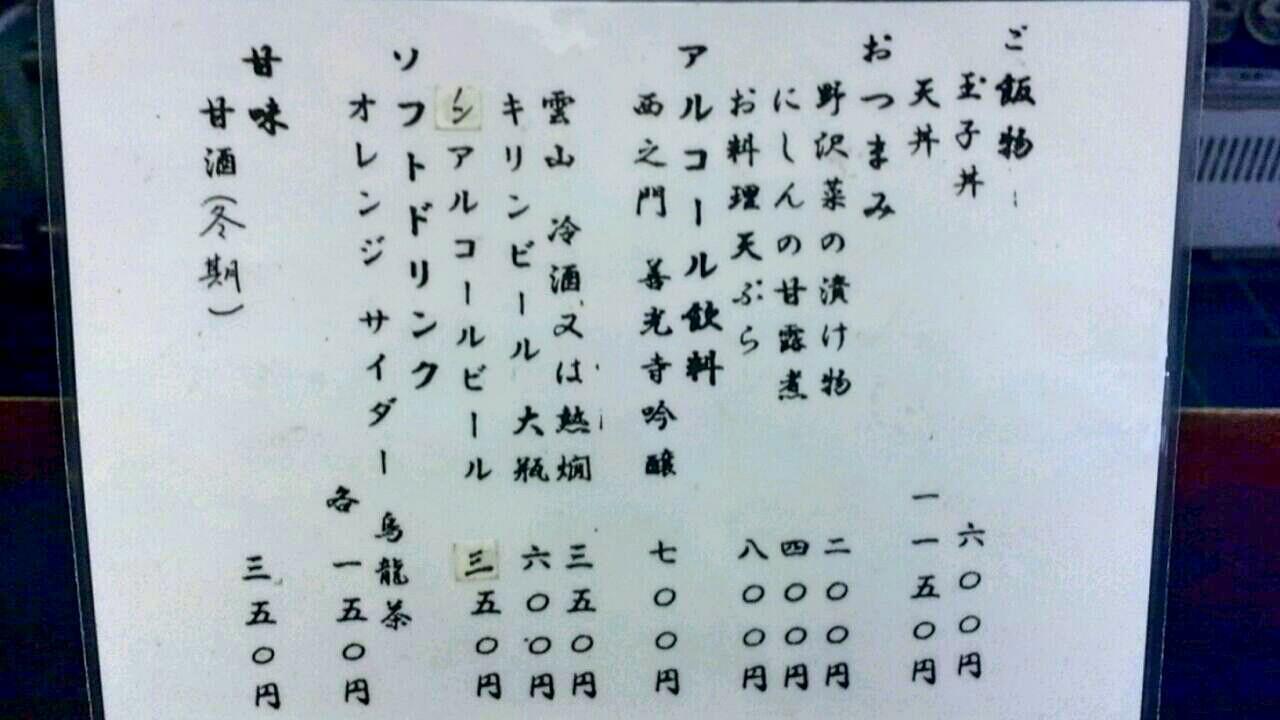 ご飯物
玉子丼 六〇〇円
天丼 一一五〇円
おつまみ
野沢菜の漬け物 二〇〇円
にしんの甘露煮 四〇〇円
お料理天ぷら 八〇〇円
アルコール飲料
西之門 善光寺吟醸 七〇〇円
雲山 冷酒又は熱燗 三五〇円
キリンビール 大瓶 六〇〇円
ノンアルコールビール 三五〇円
ソフトドリンク
オレンジ サイダー 烏龍茶
各 一五〇円
甘味
甘酒(冬期) 三五〇円